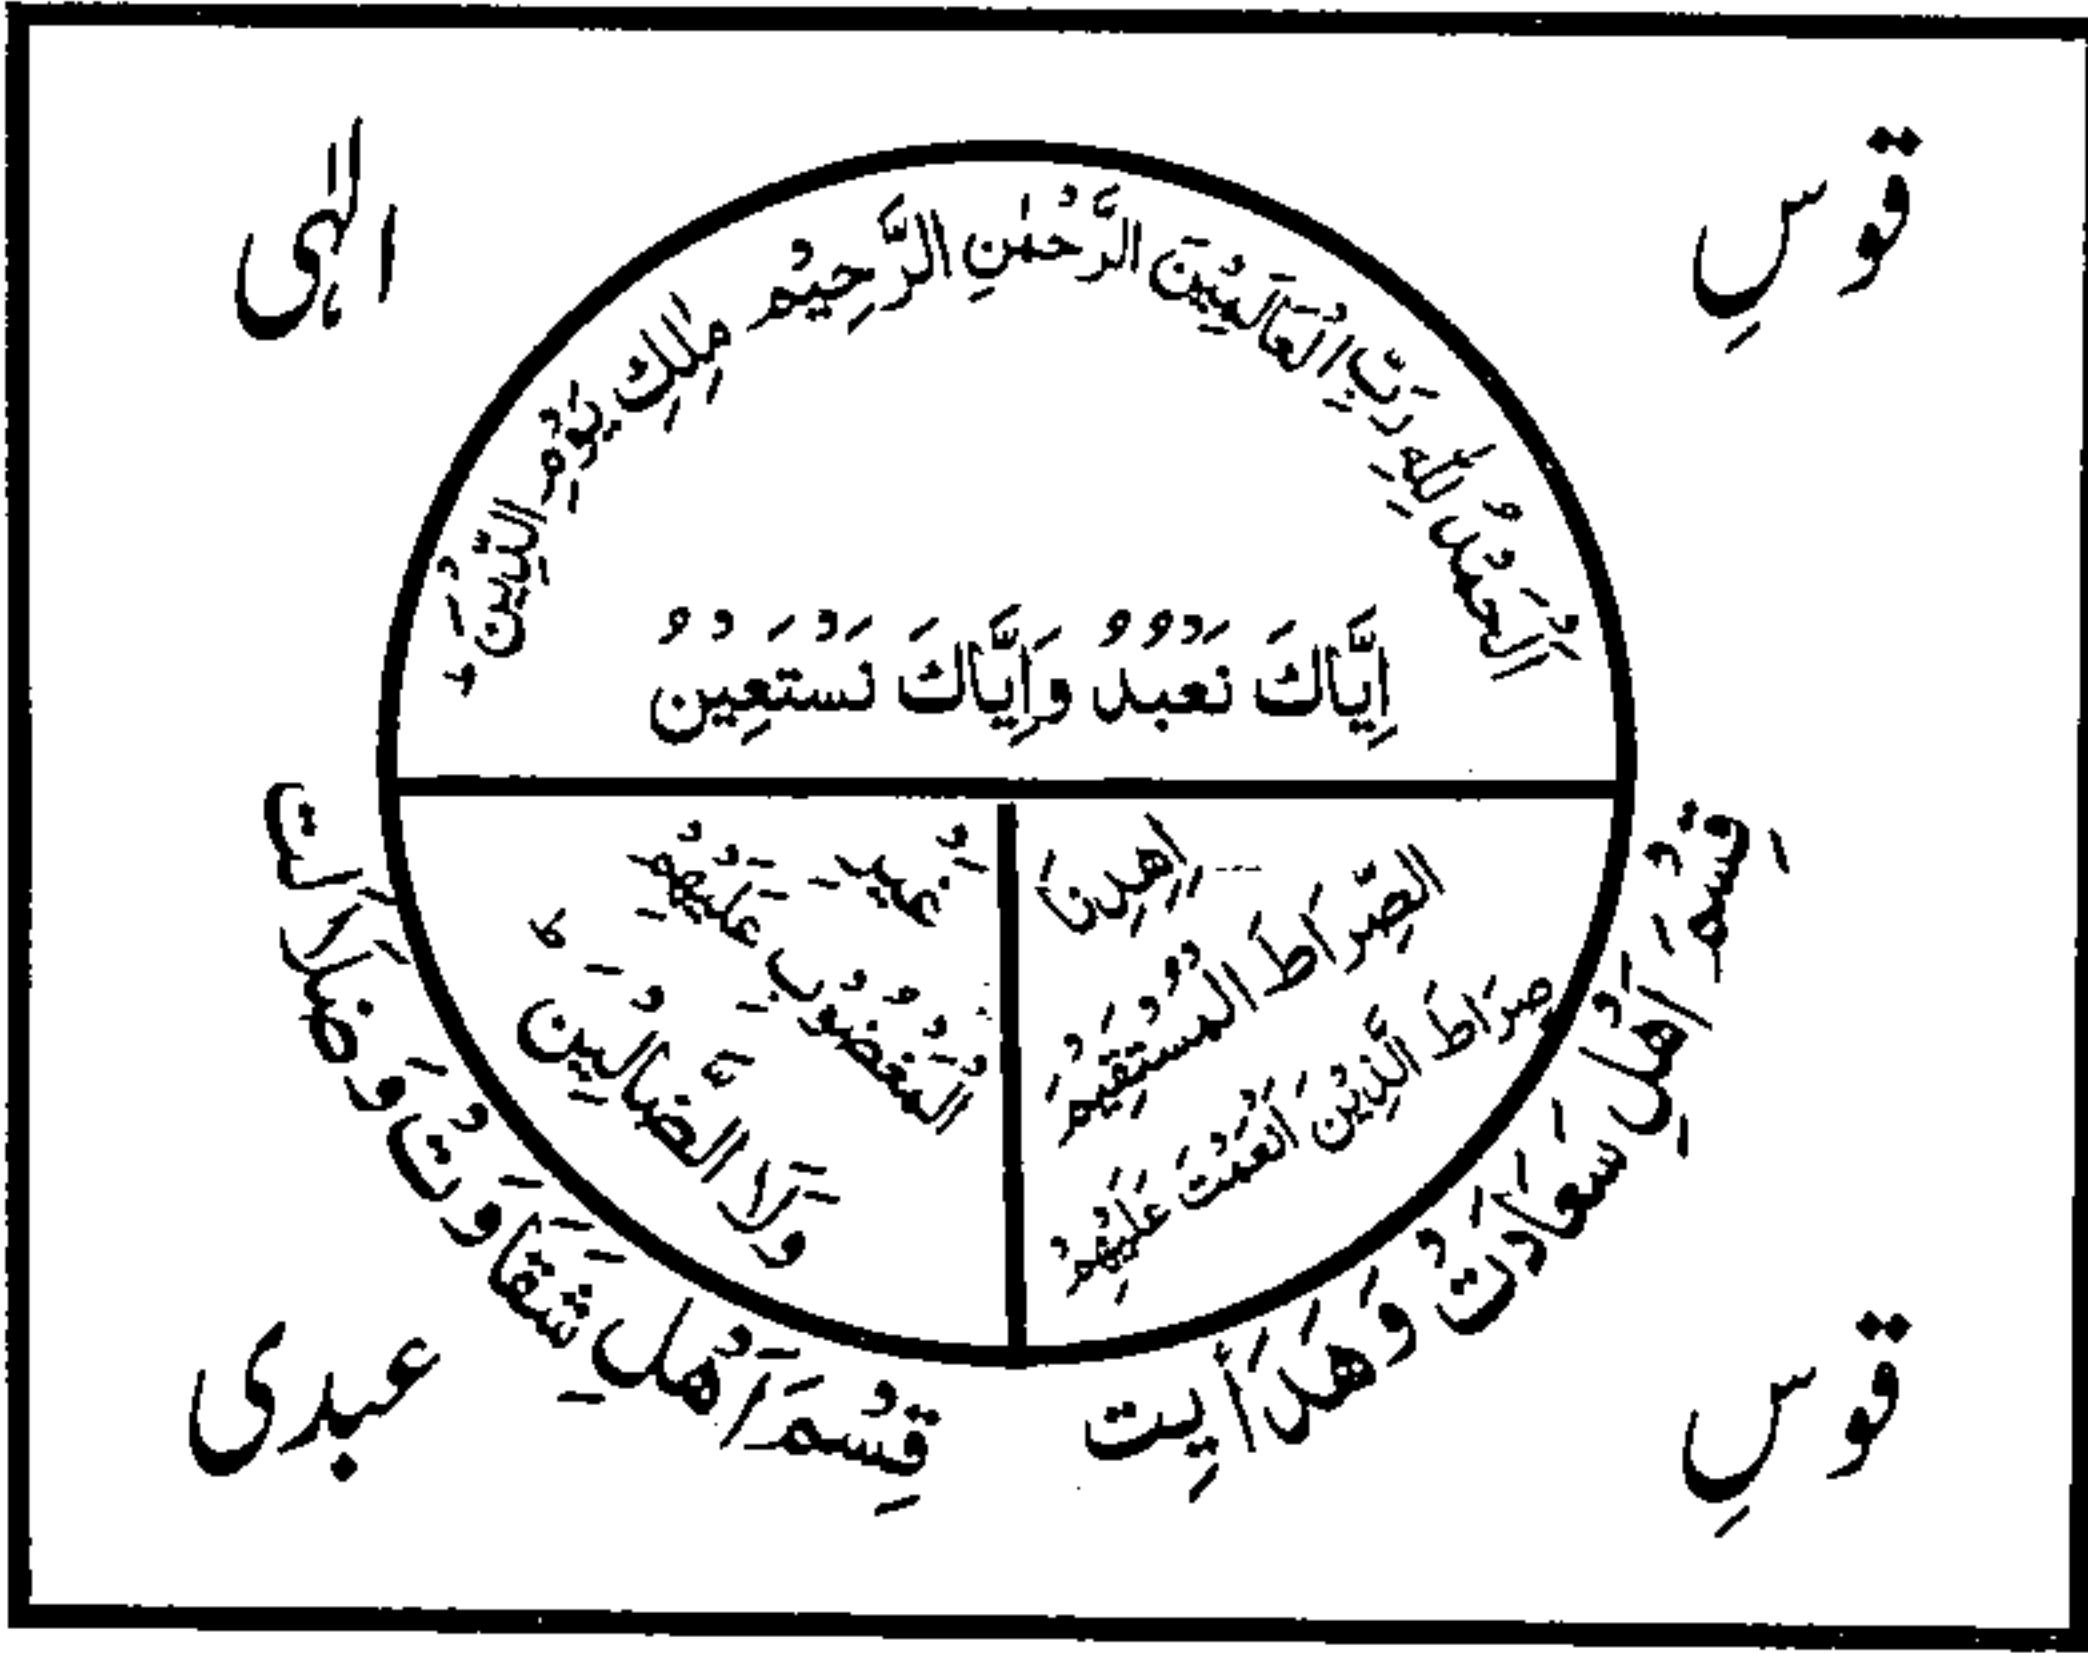 قوسِ
الٰہی
اَلْحَمْدُ لِلّٰهِ رَبِّ الْعَالَمِيْنَ الرَّحْمٰنِ الرَّحِيْمِ مٰلِكِ يَوْمِ الدِّيْنِ
اِيَّاكَ نَعْبُدُ وَاِيَّاكَ نَسْتَعِيْنُ
اِهْدِنَا
الصِّرَاطَ الْمُسْتَقِيْمَ
صِرَاطَ الَّذِيْنَ اَنْعَمْتَ عَلَيْهِمْ
غَيْرِ
الْمَغْضُوْبِ عَلَيْهِمْ
وَلَا الضَّالِّيْنَ
قِسْمِ اَهْلِ سَعَادَتْ وَ هَدَايِت
قِسْمِ اَهْلِ شَقَاوَتْ وَ ضَلَالَتْ
قوسِ
عبدی